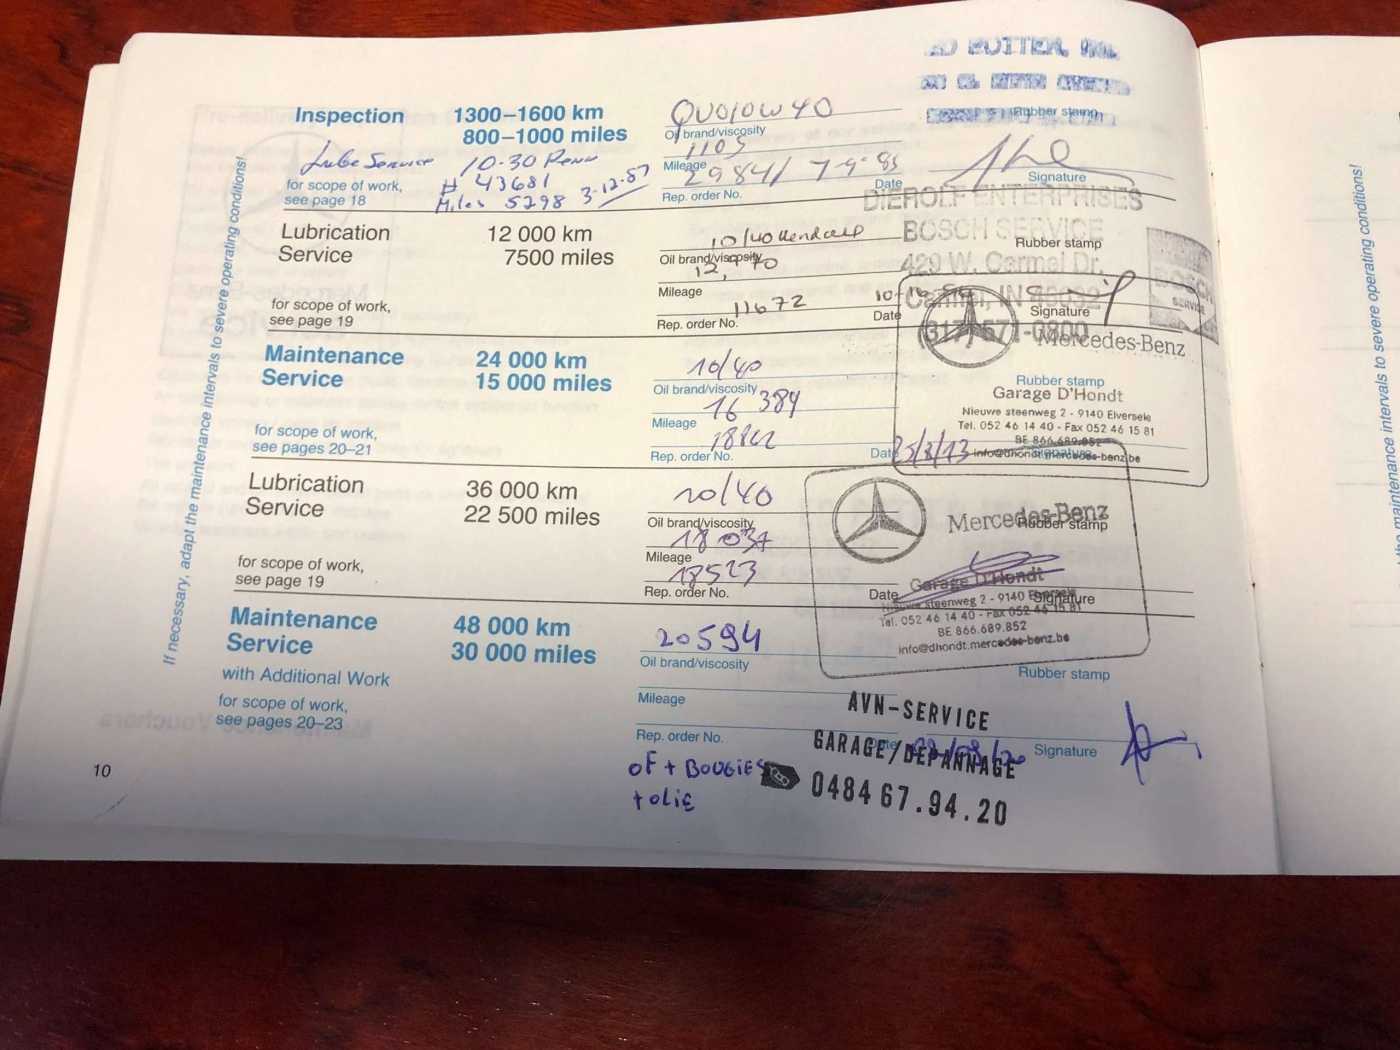 If necessary, adapt the maintenance intervals to severe operating conditions!
Inspection 1300–1600 km
800–1000 miles
Lube Service 10-30 Penn
# 43681
Miles 5298 3-12-87
for scope of work,
see page 18
10W40
Oil brand/viscosity
1105
Mileage
29841 7-9-85
Rep. order No. Date
Rubber stamp
Signature
Lubrication 12 000 km
Service 7500 miles
for scope of work,
see page 19
10/40 Kendall
Oil brand/viscosity
12,970
Mileage
11672
Rep. order No. Date
DIEROLF ENTERPRISES
BOSCH SERVICE
Rubber stamp
429 W. Carmel Dr.
Carmel, IN 46032
Signature
(317) 571-0800
BOSCH
SERVICE
Maintenance 24 000 km
Service 15 000 miles
for scope of work,
see pages 20–21
10/40
Oil brand/viscosity
16 384
Mileage
Rep. order No. Date
Mercedes-Benz
Rubber stamp
Garage D'Hondt
Nieuwe steenweg 2 - 9140 Elversele
Tel. 052 46 14 40 - Fax 052 46 15 81
BE 866.689.852
Signature
info@dhondt.mercedes-benz.be
Lubrication 36 000 km
Service 22 500 miles
for scope of work,
see page 19
10/40
Oil brand/viscosity
18 037
Mileage
18523
Rep. order No. Date
Mercedes-Benz
Rubber stamp
Garage D'Hondt
Nieuwe steenweg 2 - 9140 Elversele
Signature
Tel. 052 46 14 40 - Fax 052 46 15 81
BE 866.689.852
info@dhondt.mercedes-benz.be
Maintenance 48 000 km
Service 30 000 miles
with Additional Work
for scope of work,
see pages 20–23
20594
Oil brand/viscosity
Mileage
Rep. order No. Date
Rubber stamp
Signature
AVN-SERVICE
GARAGE/DEPANNAGE
0484 67.94.20
OF + BOUGIES
+ OLIE
10
the maintenance intervals to severe operating conditions!